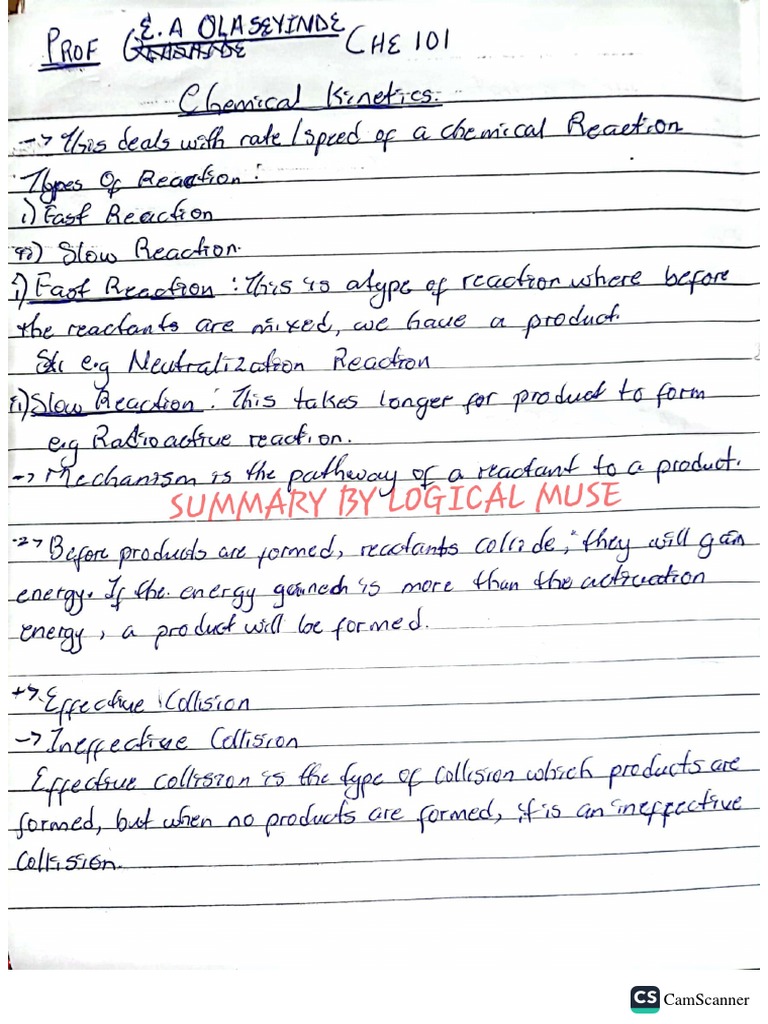 E.A OLASEYINDE
PROF CHE 101
Chemical Kinetics.
-> This deals with rate/speed of a chemical Reaction
Types Of Reaction:
i) Fast Reaction
ii) Slow Reaction.
i) Fast Reaction: This is a type of reaction where before
the reactants are mixed, we have a product.
e.g Neutralization Reaction
ii) Slow Reaction: This takes longer for product to form
e.g Radioactive reaction.
-> Mechanism is the pathway of a reactant to a product.
SUMMARY BY LOGICAL MUSE
-> Before products are formed, reactants collide, they will gain
energy. If the energy gained is more than the activation
energy, a product will be formed.
-> Effective Collision
-> Ineffective Collision
Effective collision is the type of collision which products are
formed, but when no products are formed, it is an ineffective
Collision.
CS CamScanner